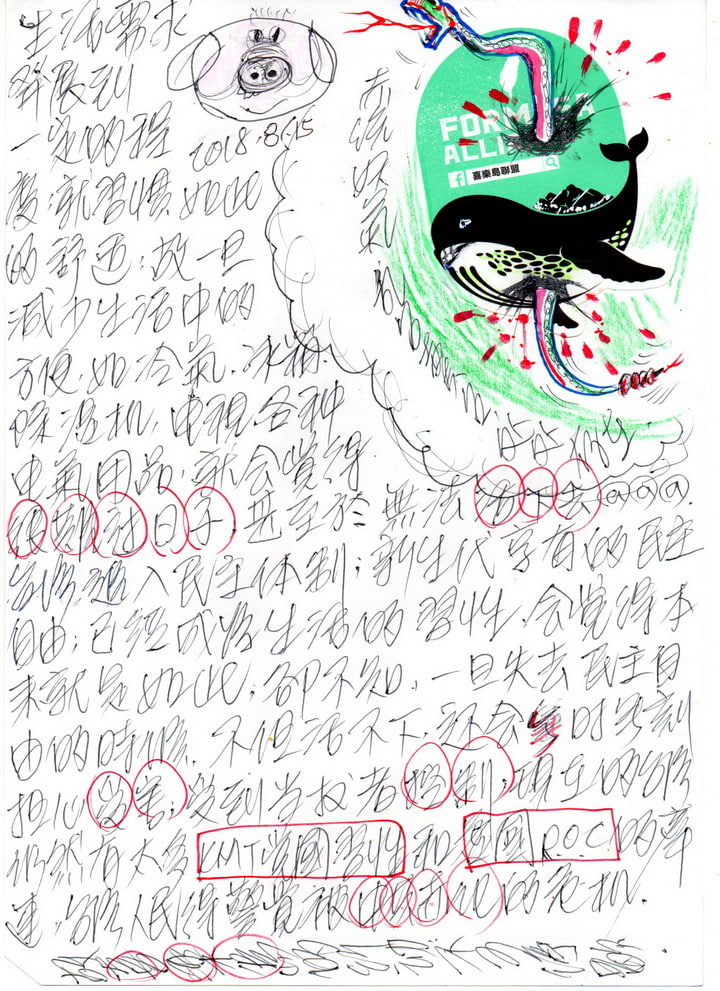 生活需求
發展到
一定的程
度,就習慣如此
的舒适;故一旦
減少生活中的
方便,如冷氣.冰箱.
除濕机,電視各种
电氣用品,就会覺得
很難过日子.甚至於無法活下去
台湾進入民主体制;新生代享有的民主
自由;已經成為生活的習性,会覺得本
來就是如此;卻不知,一旦失去民主自
由的時候,不但活不下,还会無时無刻
担心受害;受到当权者控制;現在的台湾
仍然有太多KMT党國習性和 ROC的牽
連;台湾人民得警覺被中 化的危机.
2018.8.15
FORMOSA
ALLI
喜樂島聯盟